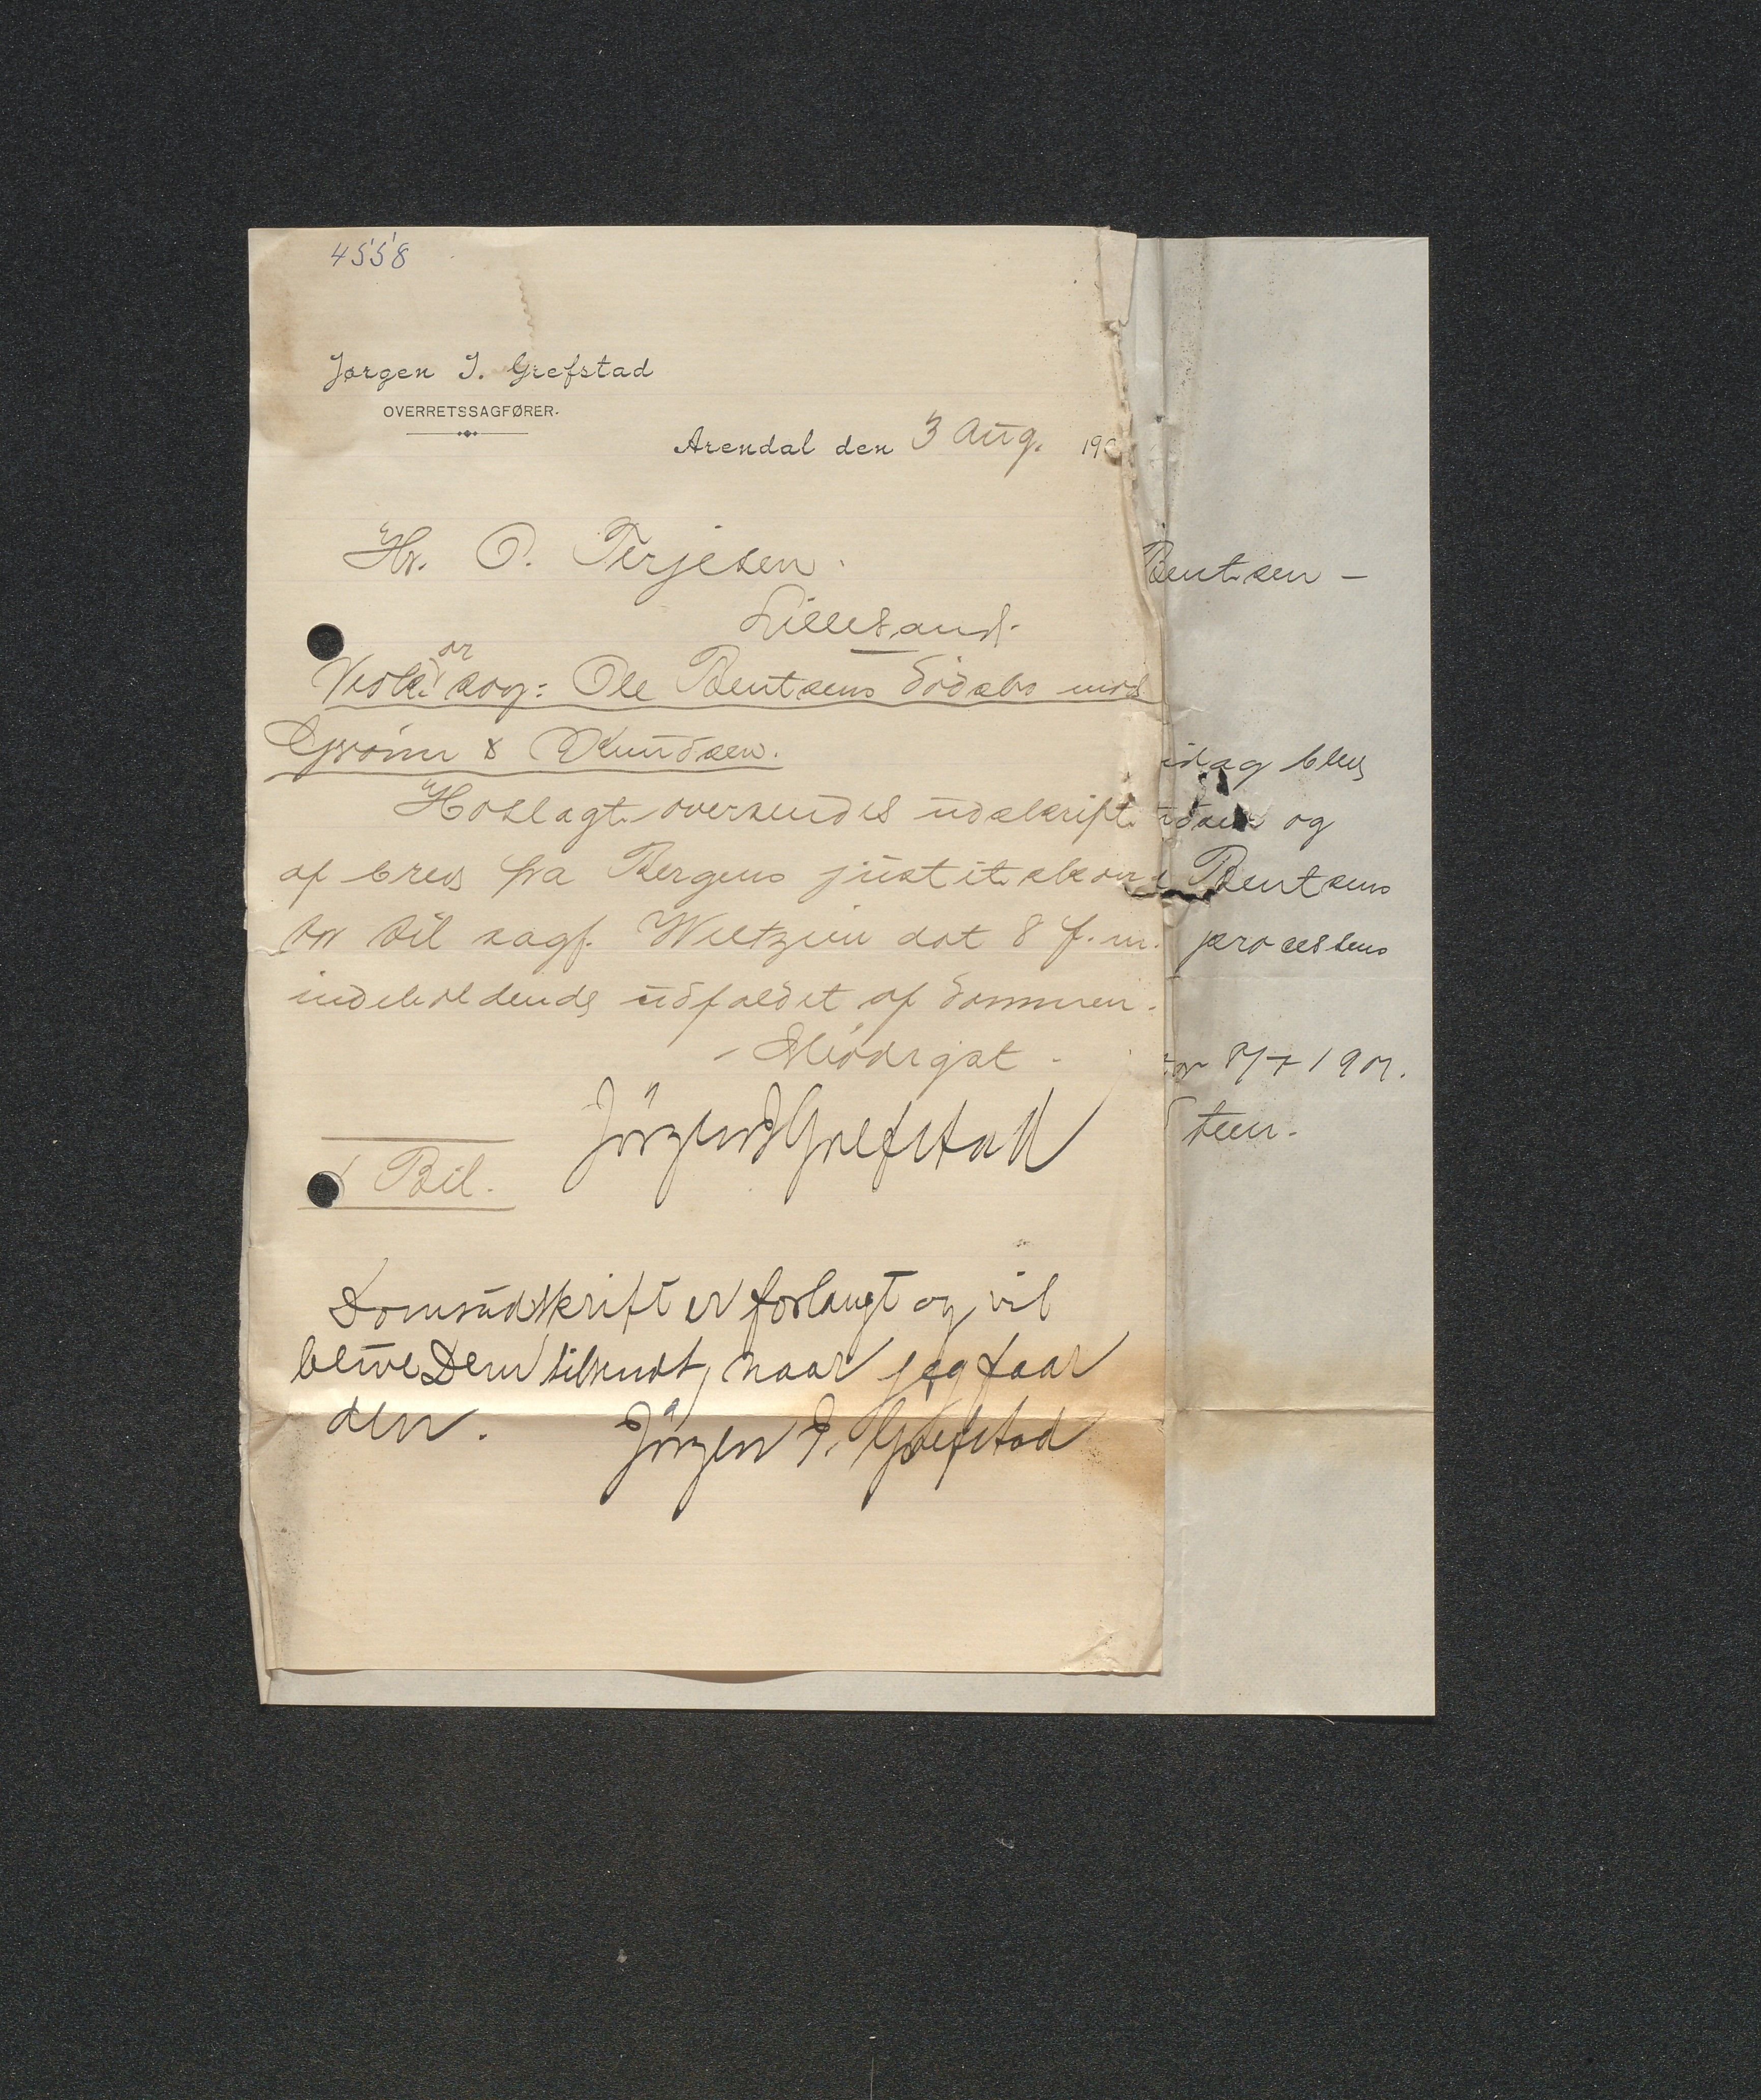 4558
Jørgen I. Grefstad
OVERRETSSAGFØRER.
Arendal den 3 Aug. 190
Hr. O. Terjesen.
Lillesand.
or
Vedk. sag: Ole Bentsens dødsbo mod
Grønn & Knudsen.
Hoslagt oversendes udskrift
af brev fra Bergens justitskon
tor til sagf. Weltzien dat 8 f. m.
indeholdende udfaldet af dommen.
- Ærbødigst -
Jørgen I Grefstad
1 Bil.
Domsudskrift er forlangt og vil
blive Dem tilsendt, naar jeg faar
den.
Jørgen I. Grefstad
Bentsen -
idag blev
og
Bentsens
processens
8/7 1907.
Steen.